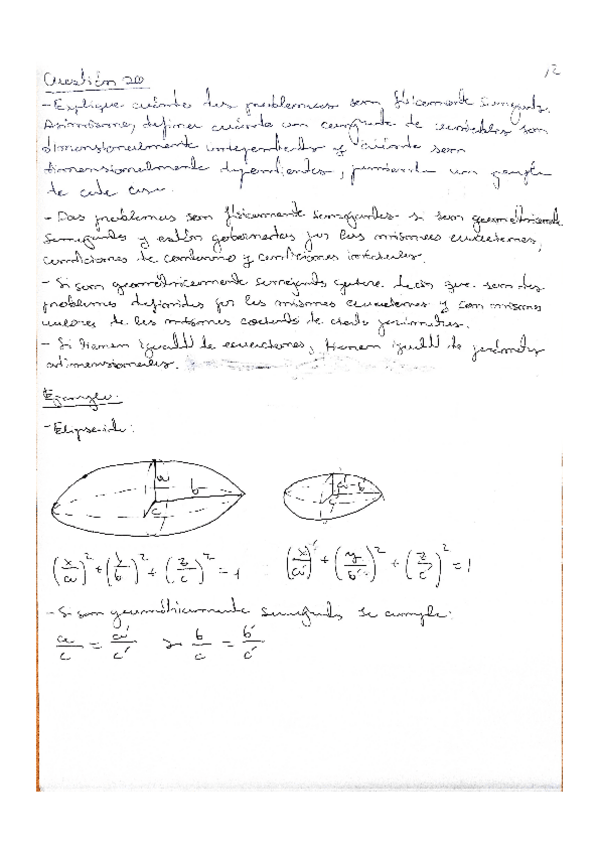 Cuestión 20
12
- Explique cuándo dos problemas son físicamente semejantes.
Asimismo, defina cuándo un conjunto de variables son
dimensionalmente independientes y cuándo son
dimensionalmente dependientes, poniendo un ejemplo
de cada caso.
- Dos problemas son físicamente semejantes si son geométricamente
semejantes y están gobernados por las mismas ecuaciones,
condiciones de contorno y condiciones iniciales.
- Si son geométricamente semejantes quiere decir que son dos
problemas definidos por las mismas ecuaciones y con mismos
valores de los mismos cocientes de ciertos parámetros.
- Si tienen igualdad de ecuaciones, tienen igualdad de parámetros
adimensionales.
Ejemplo:
- Elipsoide:
a b c
a' b' c'
(x/a)² + (y/b)² + (z/c)² = 1
(x/a')² + (y/b')² + (z/c')² = 1
- Si son geométricamente semejantes se cumple:
a/c = a'/c' y b/c = b'/c'